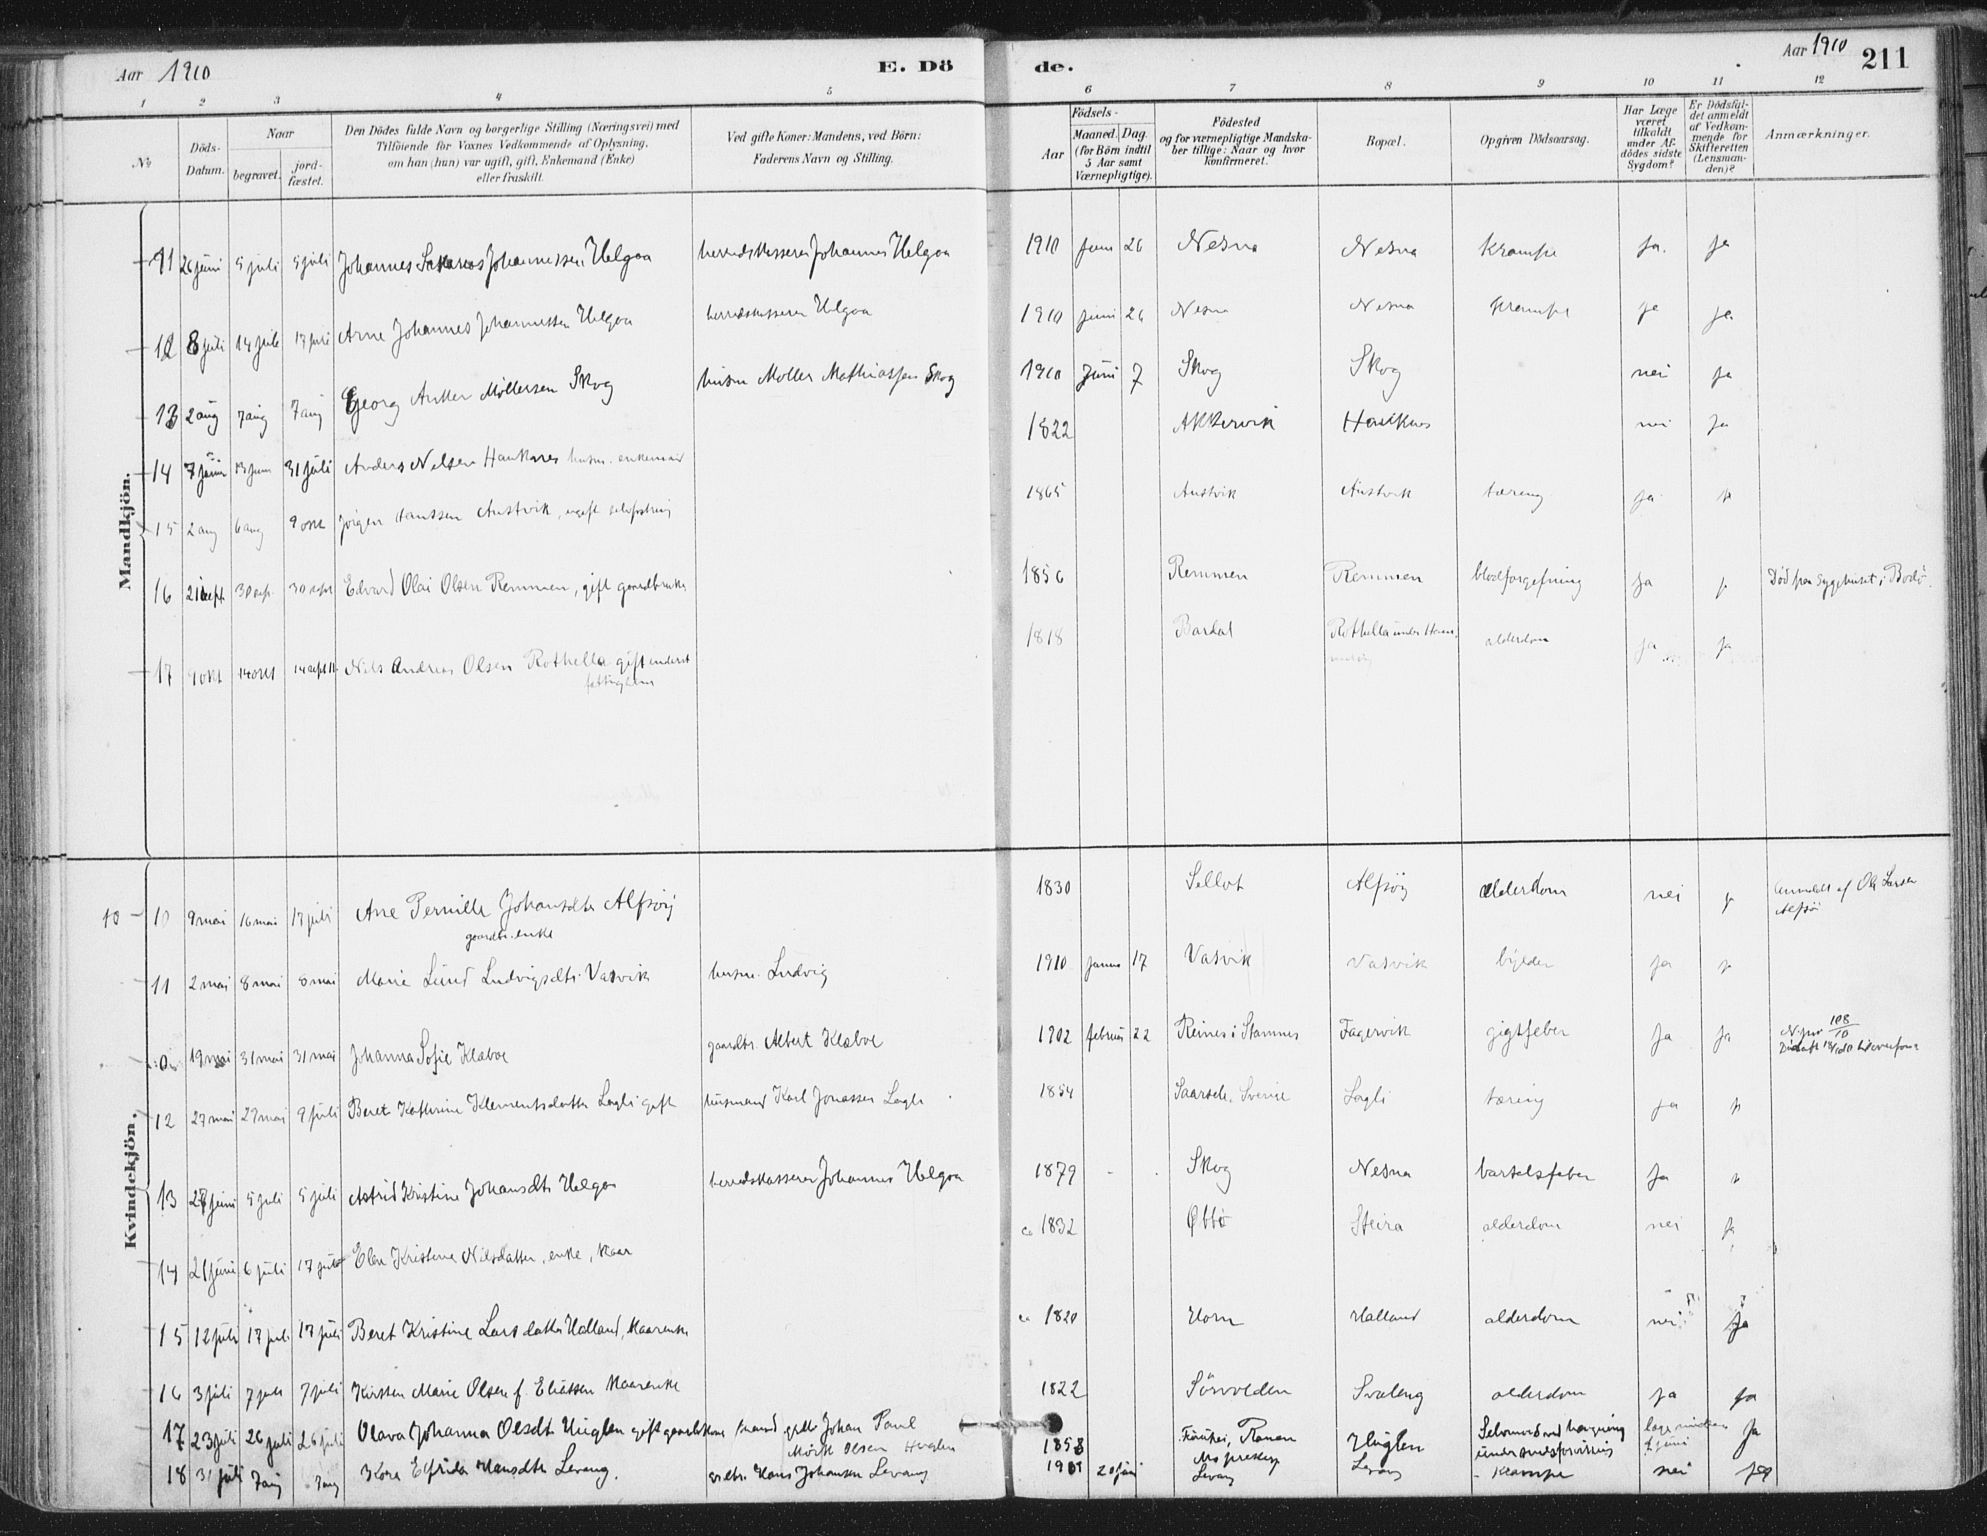 Aar 1910 E. Dö de. Aar 1910 211
1 2 3 4 5 6 7 8 9 10 11 12
№
Döds-Datum.
Naar
begravet.
jord-fæstet.
Den Dödes fulde Navn og borgerlige Stilling (Næringsvei) med
Tilföiende for Voxnes Vedkommende af Oplysning,
om han (hun) var ugift, gift, Enkemand (Enke)
eller fraskilt.
Ved gifte Koner: Mandens, ved Börn:
Faderens Navn og Stilling.
Födsels-
Aar
Maaned. Dag.
(for Börn indtil
5 Aar samt
Værnepligtige).
Födested
og for værnepligtige Mandska-
ber tillige: Naar og hvor
konfirmeret.
Bopæl.
Opgiven Dödsaarsag.
Har Læge
været
tilkaldt
under Af-
dödes sidste
Sygdom?
Er Dödsfal-
det anmeldt
af Vedkom-
mende for
Skifteretten
(Lensman-
den)?
Anmærkninger.
Mandkjön.
11 26 juni 5 juli 5 juli Johannes Johannessen Helgaa herredskasserer Johannes Helgaa 1910 Juni 26 Nesna Nesna Krampe ja. ja
12 8 juli 14 juli 17 juli Arne Johannes Johannessen Helgaa herredskasserer Helgaa 1910 Juni 26 Nesna Nesna Krampe ja ja
13 2 aug 7 aug 7 aug Georg Møllersen Skog husm Møller Mathiassen Skog 1910 Juni 7 Skog Skog nei ja
14 7 juni 13 juni 31 juli Anders Nelsen Hauknes husm. enkemand 1822 Akkervik Hauknes nei ja
15 2 aug 6 aug 9 okt Jørgen Hanssen Austvik, ugift 1865 Austvik Austvik tæring ja j
16 21 sept 30 sept. 30 sept Edvard Olai Olsen Remmen, gift gaardbruker 1856 Remmen Remmen blodforgiftning ja j Død paa sygehuset i Bodø.
17 9 okt 14 okt Nils Andreas Olsen Rothella gift inderst 1818 Bardal Rothella under alderdom ja ja
Kvindekjön.
10 10 9 mai 16 mai 17 juli Ane Pernille Johansdtr Alfsøy 1830 Sellot Alfsøy alderdom nei j Anmeldt af Ole Larsen
gaardbr. enke Alfsøi
11 2 mai 8 mai 8 mai Marie Lund Ludvigsdtr Vasvik husm. Ludvig 1910 Januar 17 Vasvik Vasvik bylder ja j
19 mai 31 mai 31 mai Johanna Sofie Klæboe gaardbr. Albert Klæboe 1902 februar 22 Reines i Stamnes Fagervik gigtfeber ja ja
12 27 mai 29 mai 9 juli Beret Kathrine Klementsdatter Lagli gift husmand Karl Jonassen Lagli 1854 Saarsele. Sverige Lagli tæring ja j
13 28 juni 5 juli 5 juli Astrid Kristine Johansdtr Helgaa herredskasserer Johannes Helgaa 1879 Skog Nesna barselsfeber ja j
14 21 juni 6 juli 17 juli Elen Kristine Nilsdatter, enke, kaar ca 1832 Steira alderdom nei ja
15 12 juli 17 juli 17 juli Beret Kristine Larsdatter Halland, kaarenke ca 1820 Horn Halland alderdom nei ja
16 3 juli 7 juli 7 juli Kirsten Marie Olsen f. Eliassen kaarenke 1822 Sørvolden Svaleng alderdom ja ja
17 23 juli 26 juli 26 juli Olava Johanna Olsdtr Huglen gift mand Johan Paul
Mørk Olsen Huglen 1858 Ranen Huglen Selvmord ved hængning ja
18 31 juli 7 aug 7 aug Kora Elfrida Hansdtr Levang. Hans Johansen Levang 20 juni Levang Levang krampe nei ja